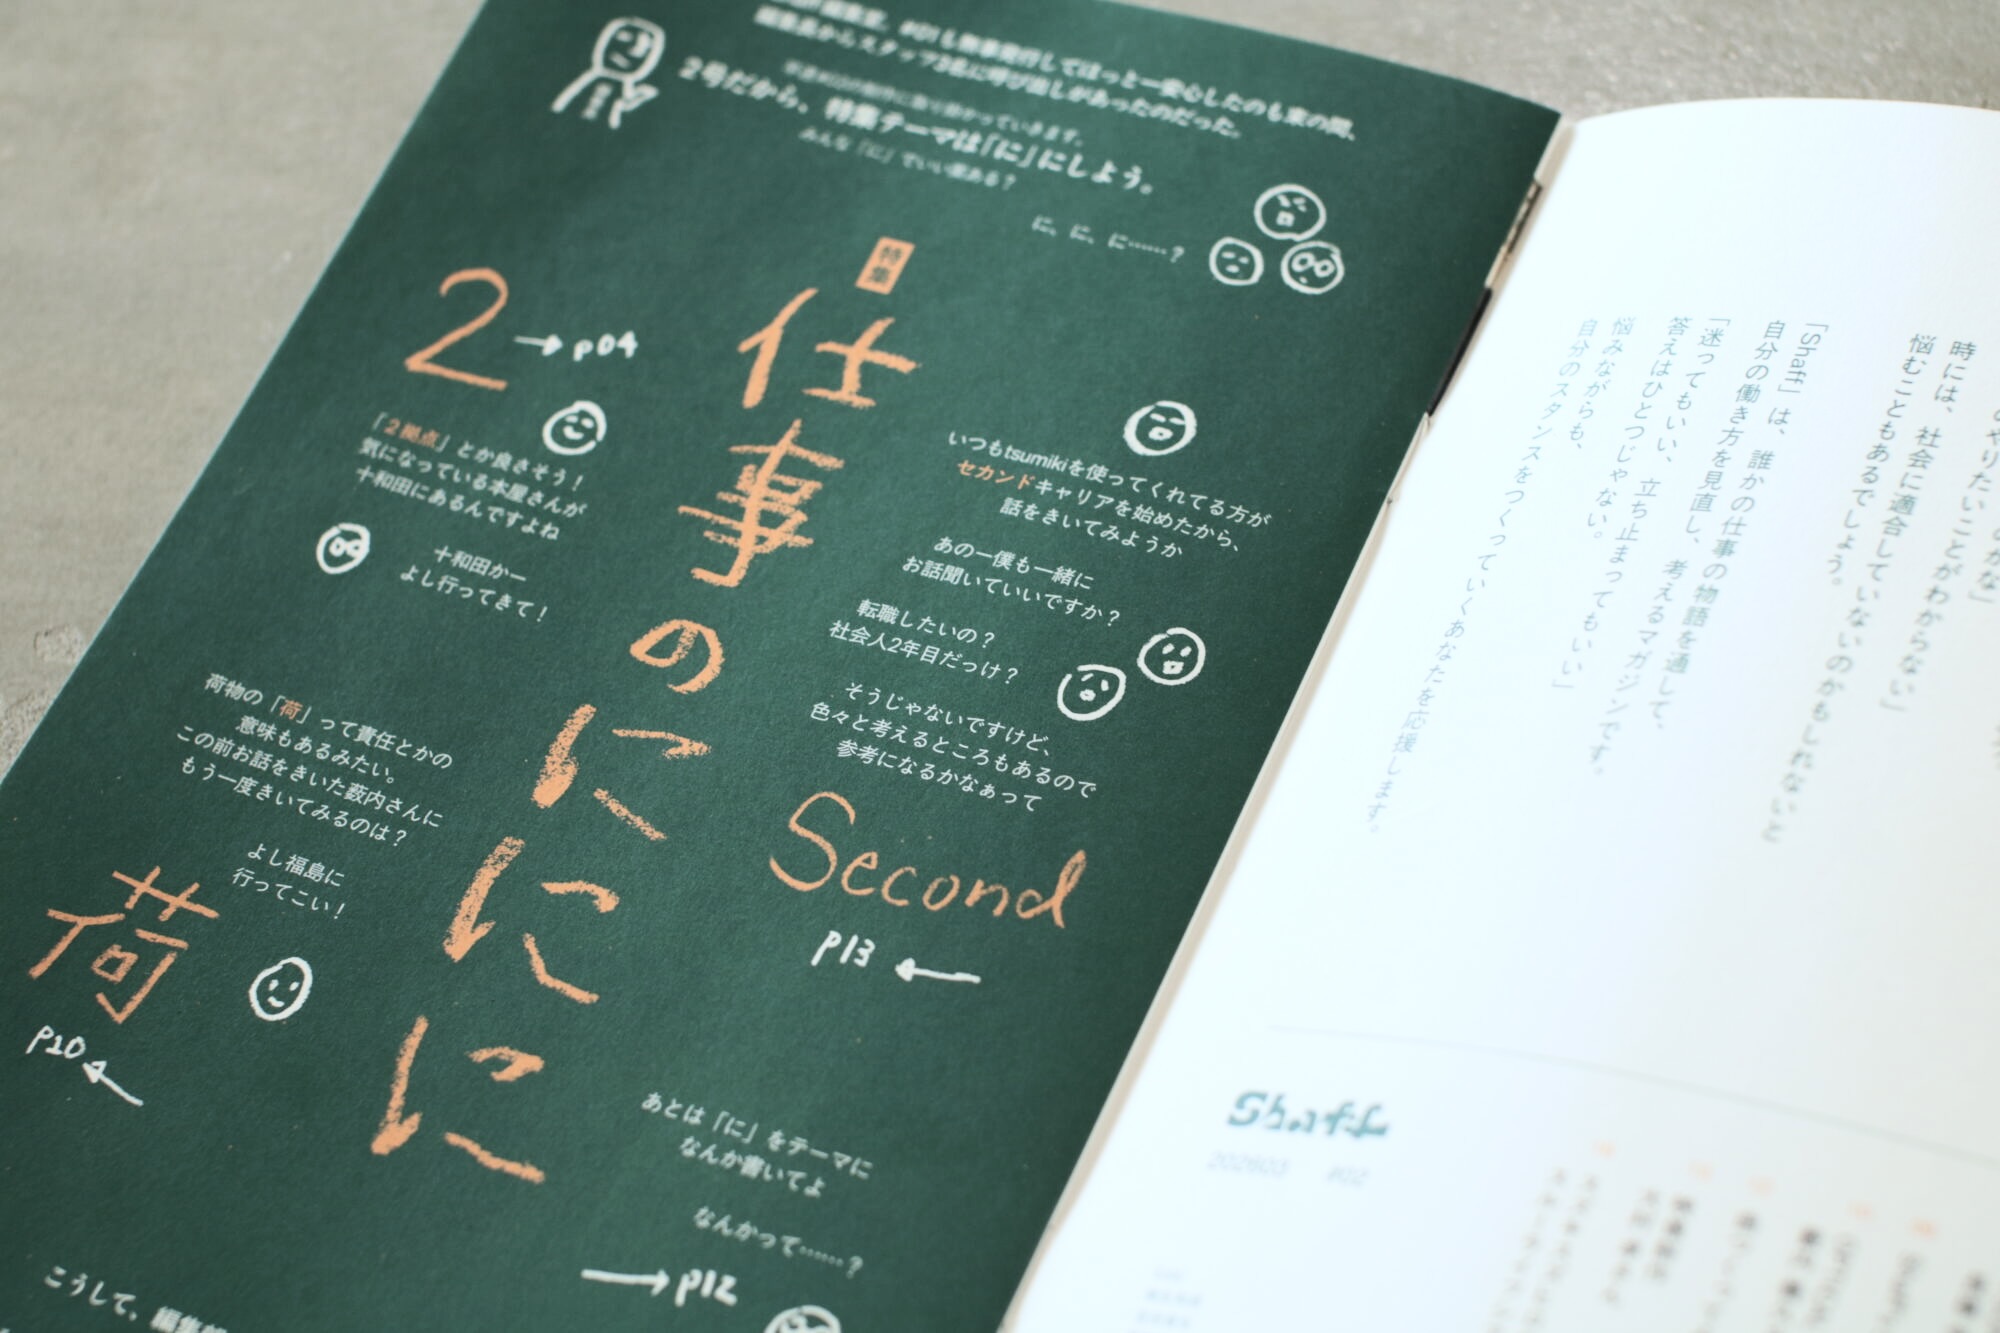 編集室、#01も無事発行してほっと一安心したのも束の間、
編集長からスタッフ3名に呼び出しがあったのだった。
2号だから、特集テーマは「に」にしよう。
みんな「に」でいい案ある？
に、に、に……？
特集
仕事のにににに
2
→p04
「2拠点」とか良さそう！
気になっている本屋さんが
十和田にあるんですよね
十和田かー
よし行ってきて！
いつもtsumikiを使ってくれてる方が
セカンドキャリアを始めたから、
話をきいてみようか
あの一僕も一緒に
お話聞いていいですか？
転職したいの？
社会人2年目だっけ？
そうじゃないですけど、
色々と考えるところもあるので
参考になるかなぁって
Second
p13←
荷物の「荷」って責任とかの
意味もあるみたい。
この前お話をきいた藪内さんに
もう一度きいてみるのは？
よし福島に
行ってこい！
荷
p10←
あとは「に」をテーマに
なんか書いてよ
なんかって……？
→p12
こうして、編集部
のやりたいことがわからない」
時には、社会に適合していないのかもしれないと
悩むこともあるでしょう。
「Shaff」は、誰かの仕事の物語を通して、
自分の働き方を見直し、考えるマガジンです。
「迷ってもいい、立ち止まってもいい」
答えはひとつじゃない。
悩みながらも、
自分のスタンスをつくっていくあなたを応援します。
Shaff
202603 #02